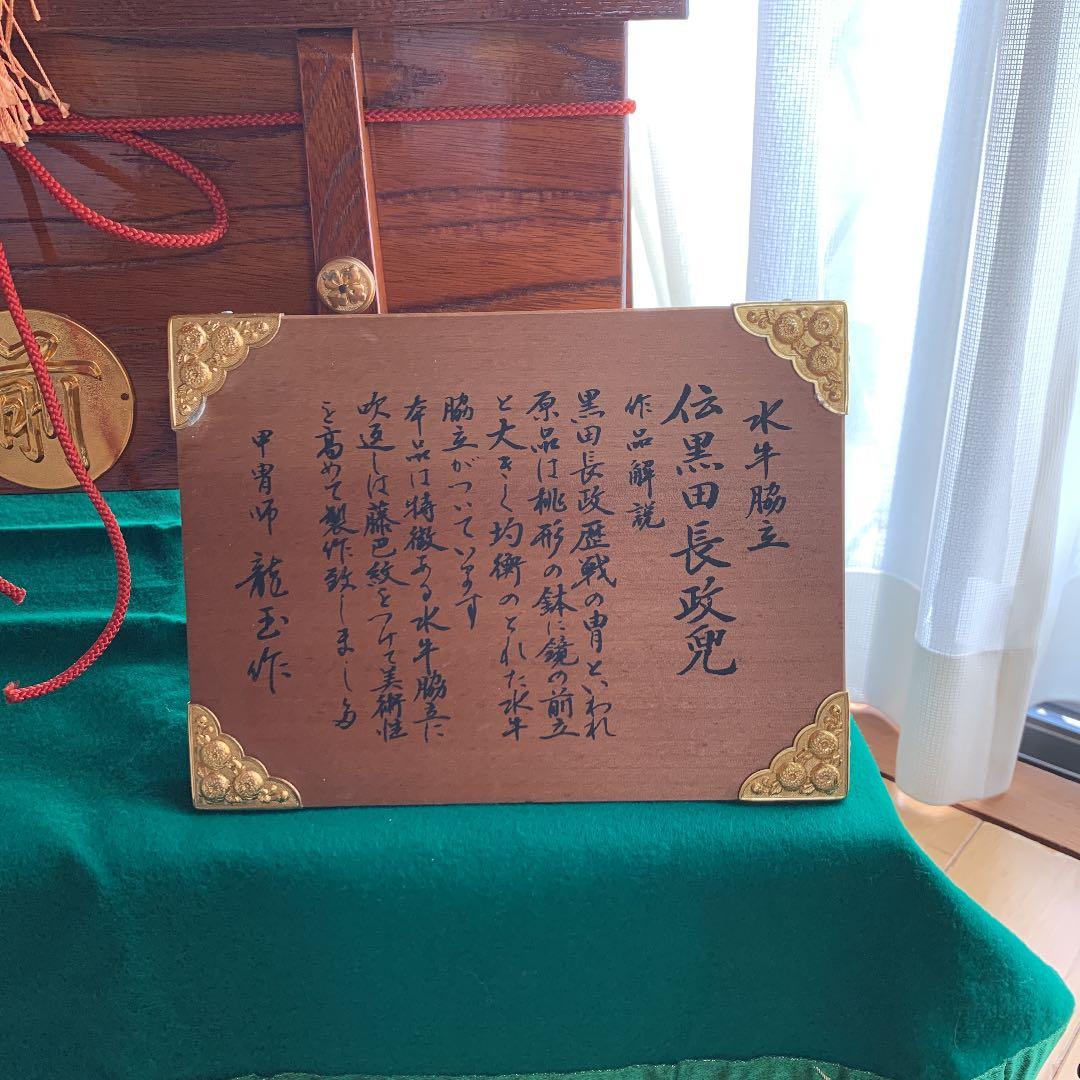 水牛脇立
伝黒田長政兜
作品解説
黒田長政歴戦の冑といわれ
原品は桃形の鉢に鏡の前立
と大きく均衡のとれた水牛
脇立がついています
本品は特徴ある水牛脇立に
吹返しは藤巴紋をつけて美術性
を高めて製作致しました
甲冑師 龍玉作
前